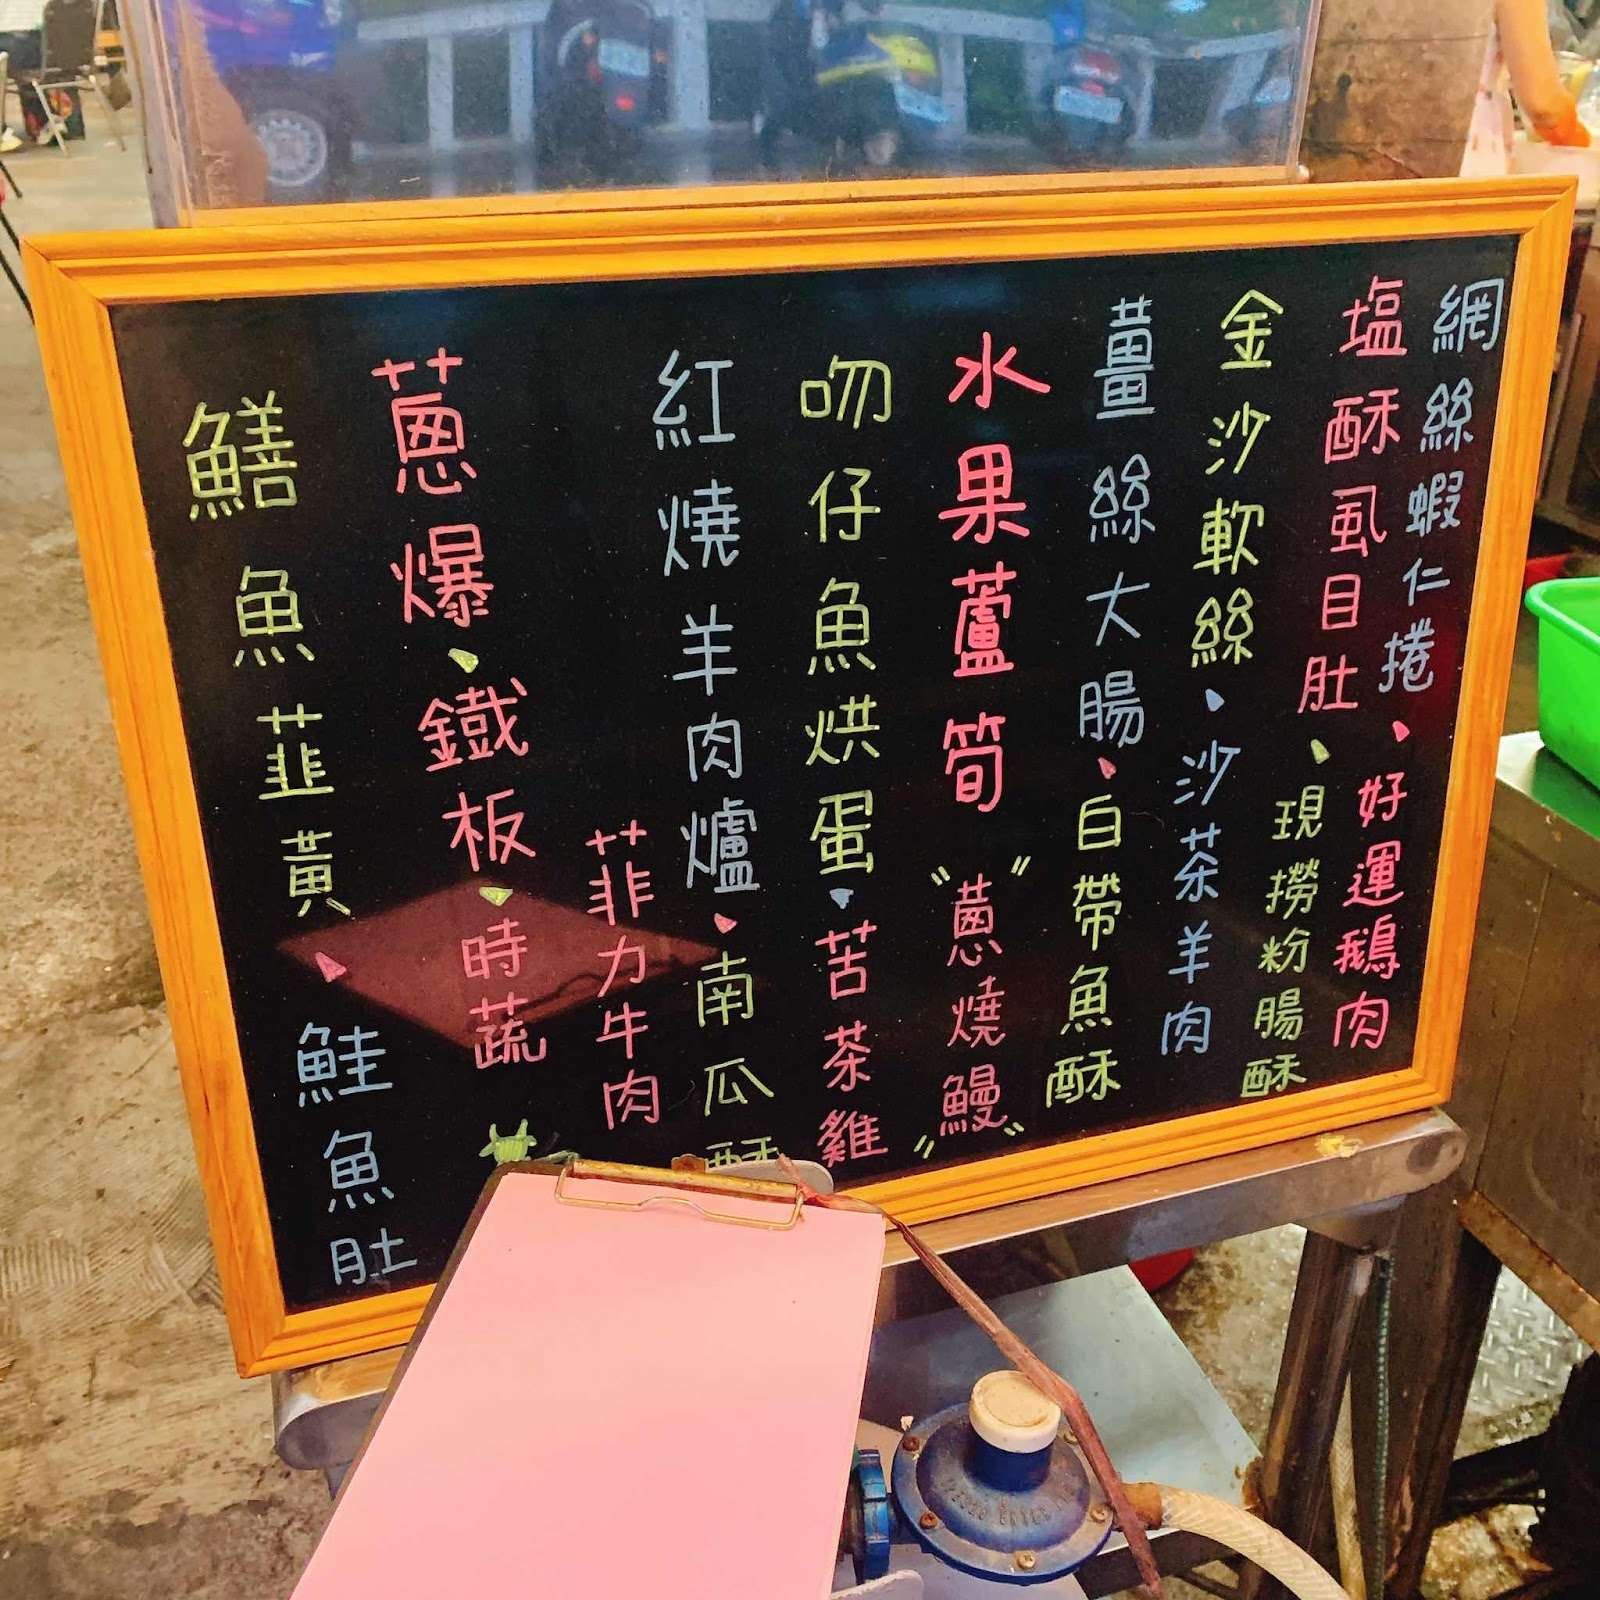 網絲蝦仁捲、好運鵝肉
塩酥虱目肚、現撈粉腸酥
金沙軟絲、沙茶羊肉
薑絲大腸、白帶魚酥
水果蘆筍 "蔥燒鰻"
吻仔魚烘蛋、苦茶雞
紅燒羊肉爐、南瓜酥
菲力牛肉
蔥爆、鐵板、時蔬
鱔魚韮黃、鮭魚肚